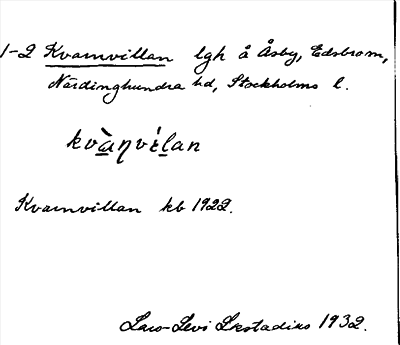 1-2 Kvarnvillan lgh å Åsby, Edsbro sn,
Närdinghundra hd, Stockholms l.
kvàŋvílan
Kvarnvillan kb 1922.
Lars-Levi Læstadius 1932.